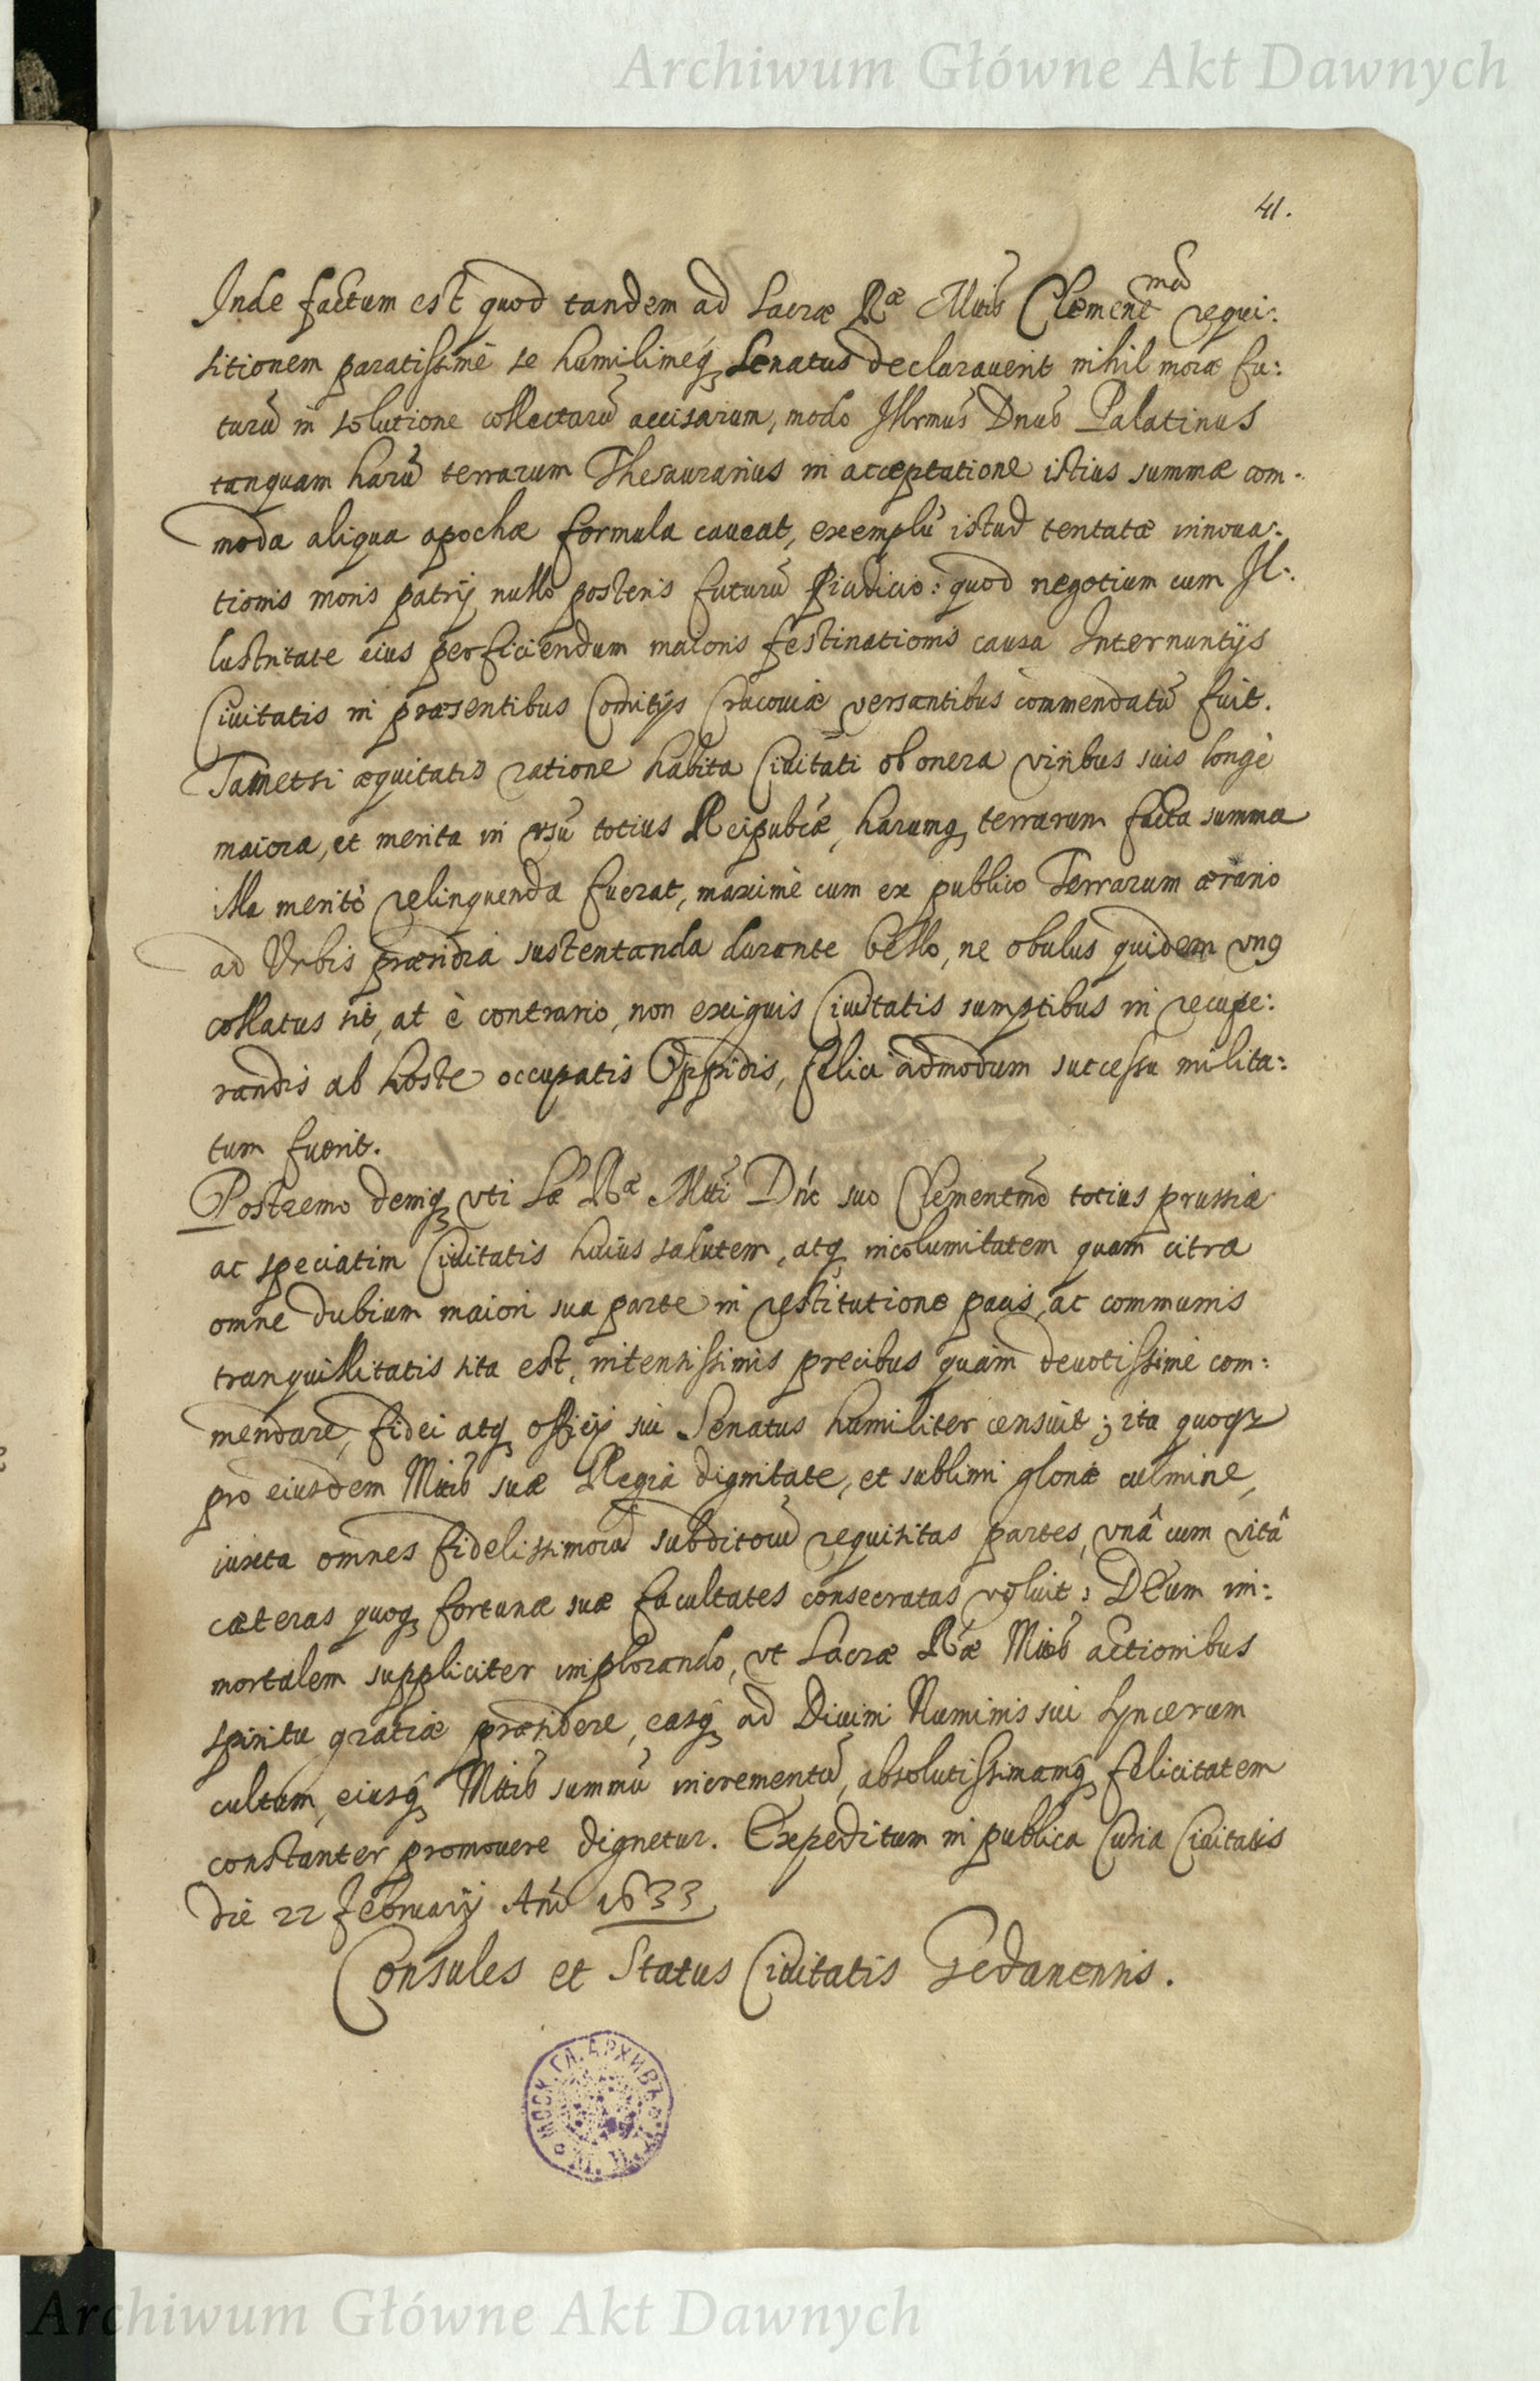 Archiwum Główne Akt Dawnych
41.
Inde factum est quod tandem ad Sacræ Ræ Mttis Clementmã requi:
sitionem paratissimè se humilimeq Senatus declarauerit nihil moræ fu:
turũ in solutione collectarũ accisarum, modo Illrmus Dnus Palatinus
tanquam harũ terrarum Thesaurarius in acceptatione istius summæ com:
moda aliqua apochæ formula caueat, exemplũ istud tentatæ innoua:
tionis moris patrij nullo posteris futurũ piudicio: quod negotium cum Il:
lustritate eius perficiendum maioris festinationis causa Internuntijs
Ciuitatis in præsentibus Comitijs Cracouiæ versantibus commendatũ fuit.
Tametsi æquitatis ratione habita Ciuitati ob onera viribus suis longè
maiora, et merita in vsũ totius Reipubcæ, harumq terrarum facta summa
illa meritò relinquenda fuerat, maximè cum ex publico Terrarum ærario
ad Vrbis præsidia sustentanda durante bello, ne obulus quidem vnq
collatus sit, at è contrario, non exiguis Ciuitatis sumptibus in recupe:
randis ab hoste occupatis Oppidis, felici admodum successu milita:
tum fuerit.
Postremo deniq vti Sæ Ræ Mtti Dnõ suo Clementmo totius prussiæ
ac speciatim Ciuitatis huius salutem, atq incolumitatem quam citra
omne dubium maiori sua parte in restitutione pacis, ac communis
tranquillitatis sita est, intensissimis precibus quàm deuotissimè com:
mendare, fidei atq officij sui Senatus humiliter censuit; ita quoqz
pro eiusdem Mttis suæ Regia dignitate, et sublimi gloriæ culmine,
iuxta omnes fidelissimorũ subditorũ requisitas partes, vnâ cum vitâ
cæteras quoq fortunæ suæ facultates consecratas voluit; Deum im:
mortalem suppliciter implorando, vt Sacræ Ræ Mttis actionibus
spiritu gratiæ præsidere, easq ad Diuini Numinis sui syncerum
cultum, eiusq Mttis summũ incrementũ, absolutissimamq felicitatem
constanter promouere dignetur. Expeditum in publica Curia Ciuitatis
die 22 Februarij Anõ 1633
Consules et Status Ciuitatis Gedanensis.
МОСК. ГЛ. АРХИВЪ
Archiwum Główne Akt Dawnych